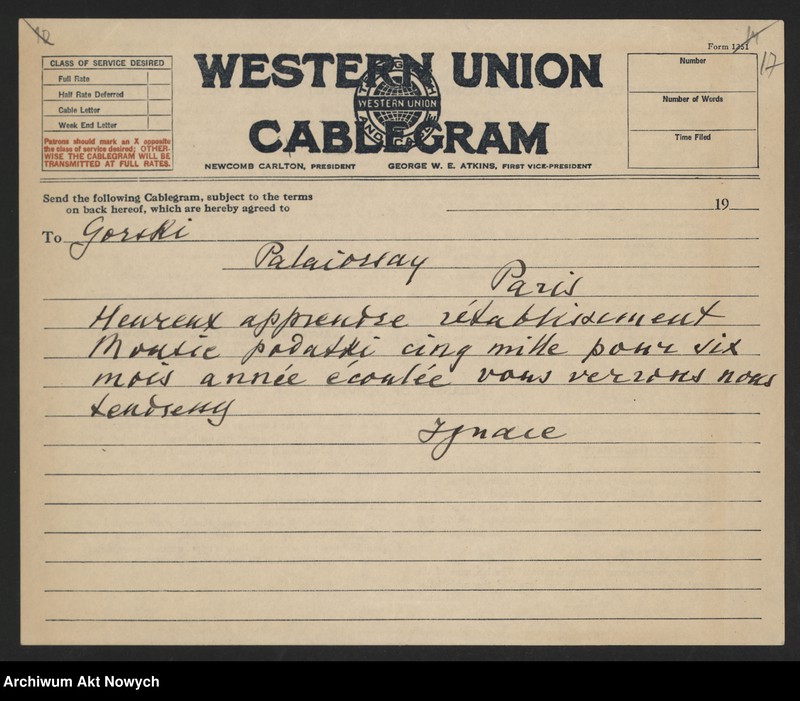 12
14
Form 1251
17
CLASS OF SERVICE DESIRED
Full Rate
Half Rate Deferred
Cable Letter
Week End Letter
Patrons should mark an X opposite
the class of service desired; OTHER-
WISE THE CABLEGRAM WILL BE
TRANSMITTED AT FULL RATES.
WESTERN UNION
TELEGRAPH
WESTERN UNION
AND CABLE
CABLEGRAM
NEWCOMB CARLTON, PRESIDENT GEORGE W. E. ATKINS, FIRST VICE-PRESIDENT
Number
Number of Words
Time Filed
Send the following Cablegram, subject to the terms
on back hereof, which are hereby agreed to
19
To Gorski
Palaiseau
Paris
Heureux apprendre rétablissement
podatki cinq mille pour six
mois année écoulée vous verrons nous
Ignace
Archiwum Akt Nowych